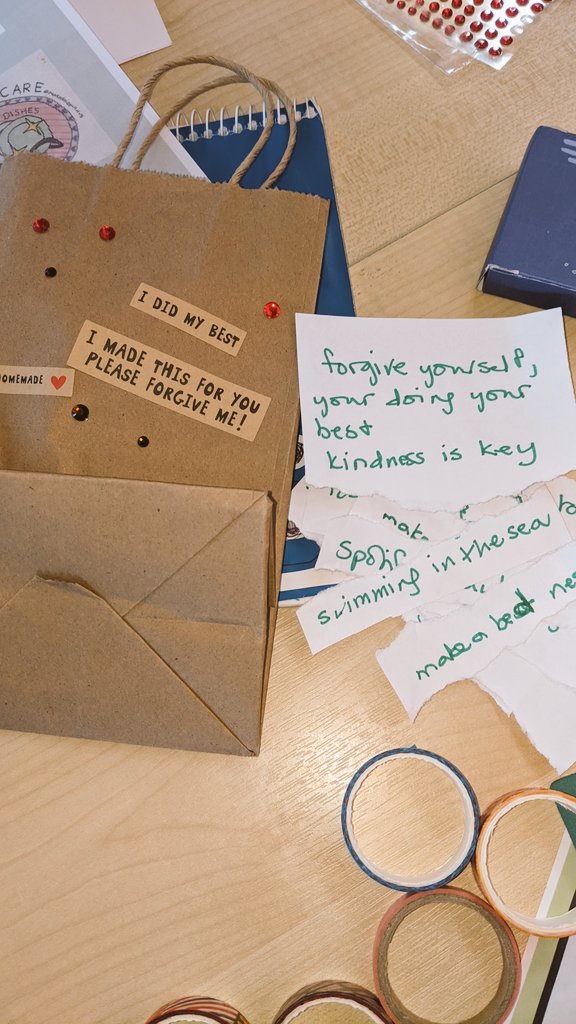 CARE
DISHES
I DID MY BEST
I MADE THIS FOR YOU
PLEASE FORGIVE ME!
HOMEMADE
forgive yourself,
your doing your
best
kindness is key
make
swimming in the sea
make a best